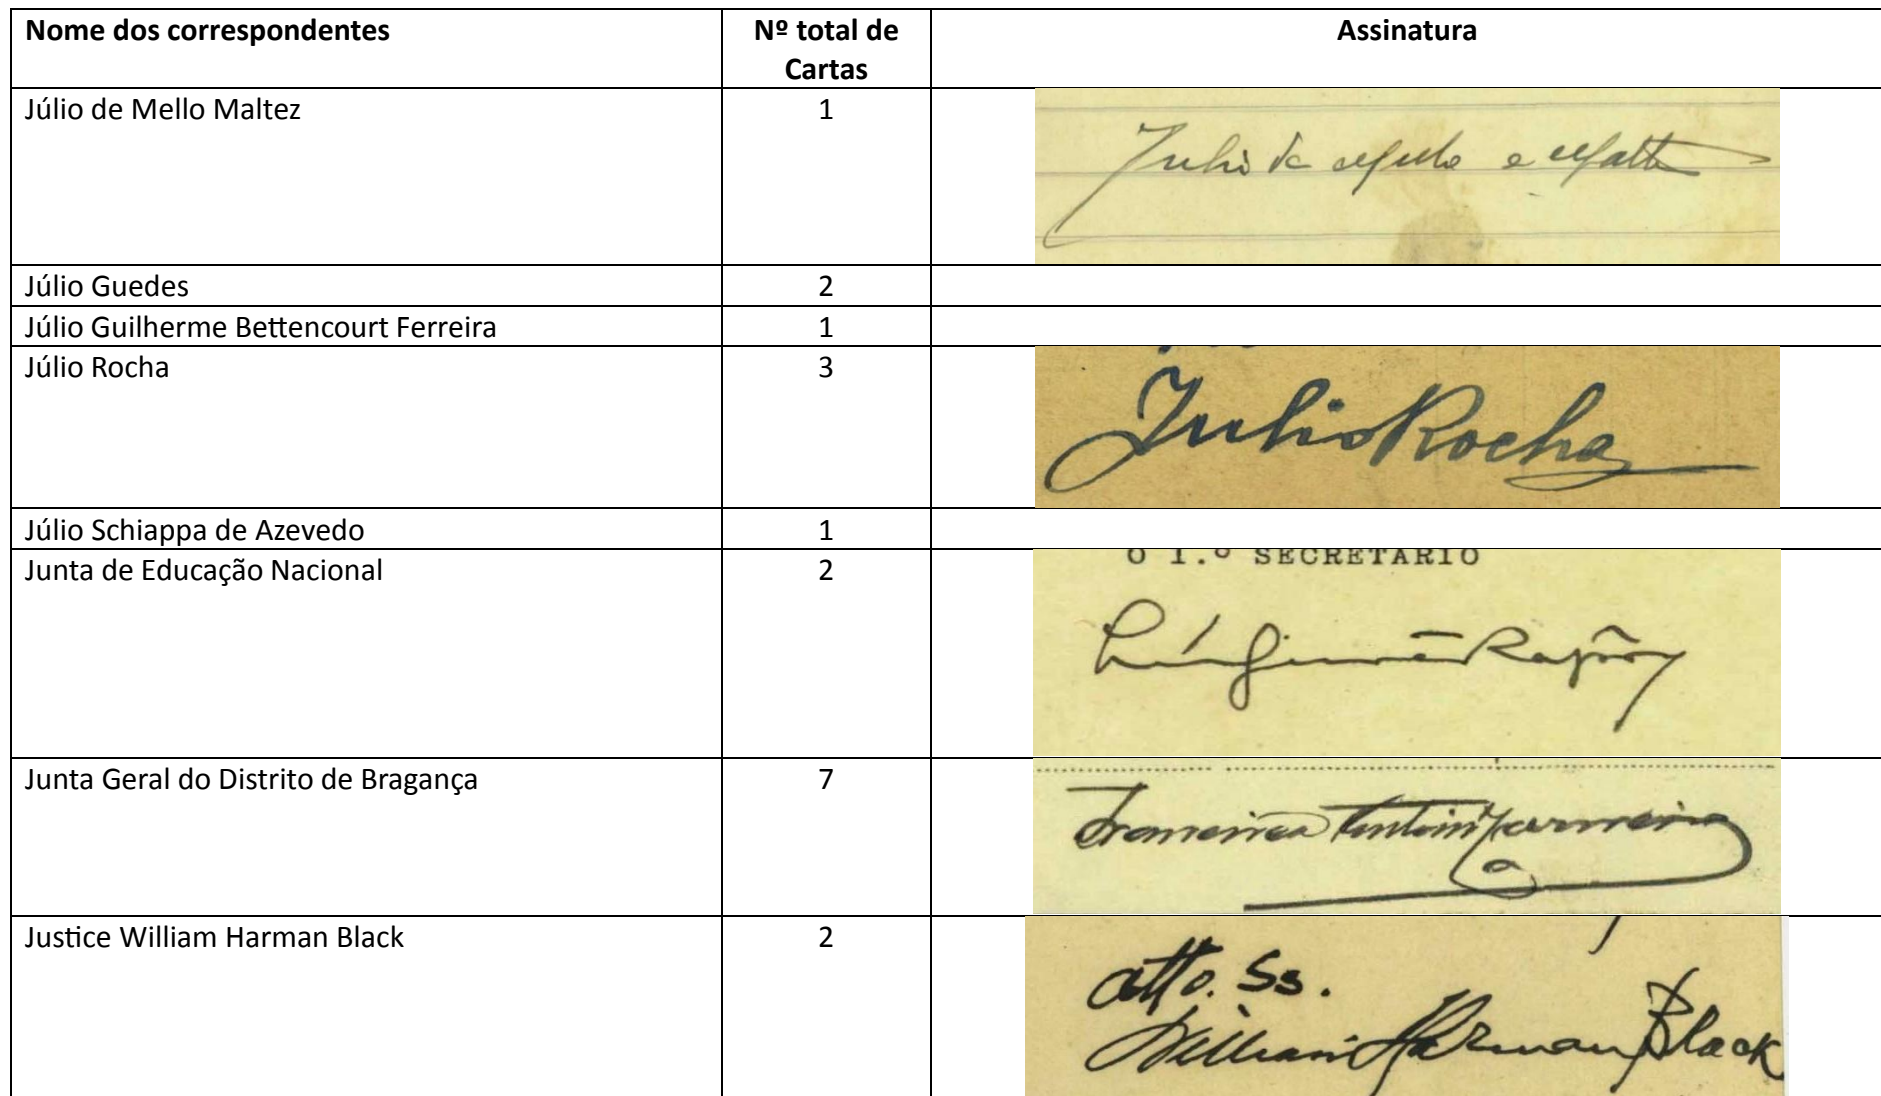 Nome dos correspondentes
Nº total de Cartas
Assinatura
Júlio de Mello Maltez
1
Julio de Mello e Malt
Júlio Guedes
2
Júlio Guilherme Bettencourt Ferreira
1
Júlio Rocha
3
Julio Rocha
Júlio Schiappa de Azevedo
1
Junta de Educação Nacional
2
O I.º SECRETARIO
Junta Geral do Distrito de Bragança
7
Justice William Harman Black
2
atto. Ss.
William Harman Black